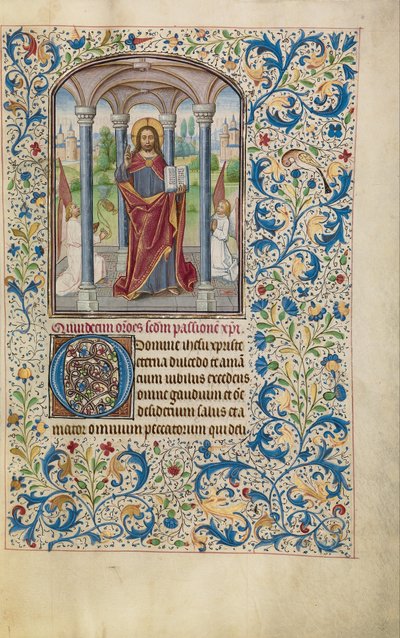 Quindecim orões sc̄dm passione xp̄i
O Domine ihesu xp̄riste
eterna dulcedo et amā
cium iubilus excedens
omne gaudium et ōe
desiderium salus et a
mator omnium peccatorum qui deli